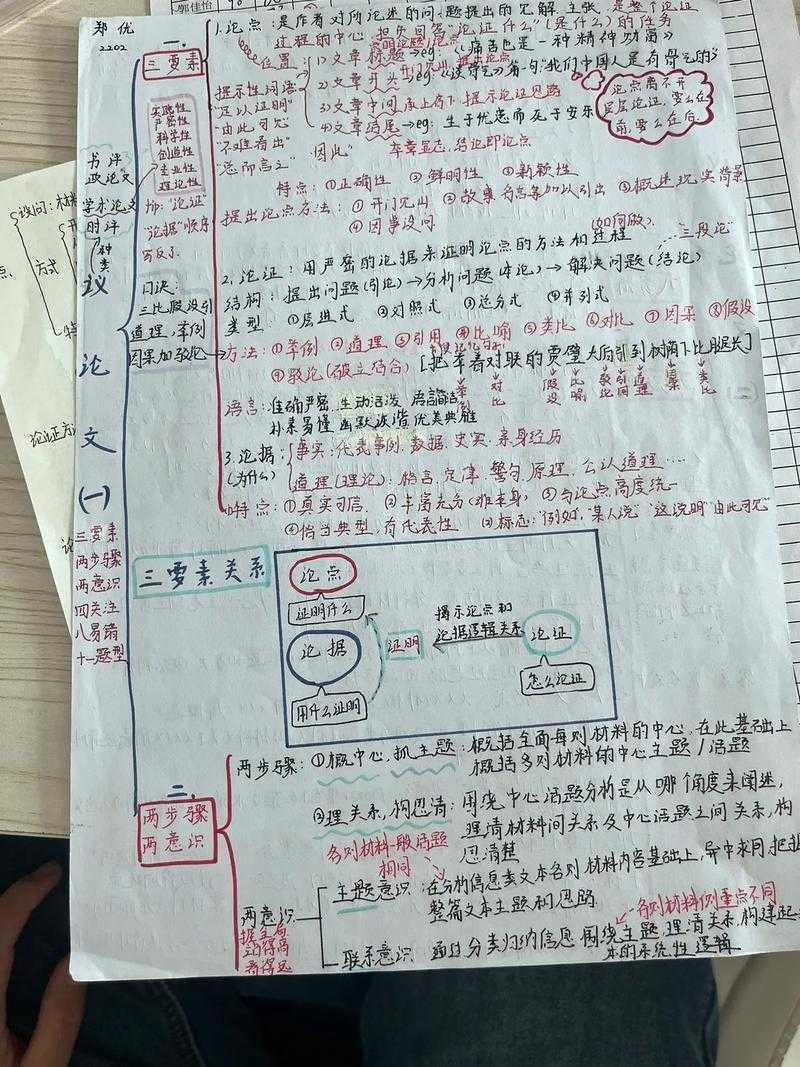 郑优
2202
一.
三要素
1.论点：是作者对所论述的问题提出的见解 主张 是整个论证
过程的中心 担负回答"论证什么"(是什么)的任务
位置：1)文章标题→eg：《
2)文章开头 eg《谈骨气》首句"我们中国人是有骨气的"
3)文章中间 承上启下 提示论证思路
4)文章结尾→eg：生于忧患而死于安乐
卒章显志，结论即论点
提示性词语
"足以证明"
"由此可见"
"不难看出"
"总而言之"
"因此"
论点离不开
层层论证，要么在
前，要么在后
特点：①正确性 ②鲜明性 ③新颖性
提出论点方法：①开门见山 ②故事、名言等加以引出 ③概述现实背景
④因事设问
(如何做)
实践性
严密性
科学性
创造性
专业性
理论性
书评
政论文
学术论文
时评
种类
tip："论证"
"论据"顺序
写反了
口诀：
三比假设引
道理，举例
因果加驳论
2.论证：用严密的论据来证明论点的方法和过程
"三段论"
结构：提出问题(引论)→分析问题(本论)→解决问题(结论)
类型：①层进式 ②对照式 ③总分式 ④并列式
方法：①举例 ②道理 ③引用 ④比喻 ⑤类比 ⑥对比 ⑦因果 ⑧假设
⑨驳论(破立结合)
[把举着对联的贾璧太后引到树荫下比腿长]
语言：准确严密 生动活泼 语言简洁
朴素易懂 幽默诙谐 优美典雅
3.论据：
(为什么)
事实：代表事例、数据、史实、亲身经历
道理(理论)：格言、定律、警句、原理、公认道理……
(1)特点：①真实可信 ②丰富充分 ③与论点高度统一
④恰当典型，有代表性 (2)标志："例如，某人说""这说明""由此可见"
议论文(一)
三要素
两步骤
两意识
四关注
八易错
十一题型
三要素关系
论点
证明什么
论据
用什么证明
证明
揭示论点和
论据逻辑关系
论证
怎么论证
二.
两步骤
两意识
两步骤：①概中心，抓主题：概括全面每则材料的中心，在此基础上
概括多则材料的中心主题/话题
②理关系，构思清：围绕中心话题分析是从哪个角度来阐述，
理清材料间关系及中心话题之间关系，构
思清楚
各则材料一般话题
相同
两意识
主题意识：在分析信息类文本各则材料内容基础上，异中求同，把握
整篇文本主题和思路
各则材料侧重点不同
联系意识：通过分类归纳信息 围绕主题，理清关系，构建起
本的系统性逻辑
握全局
站得高
看得远
设问：
方式
论证方